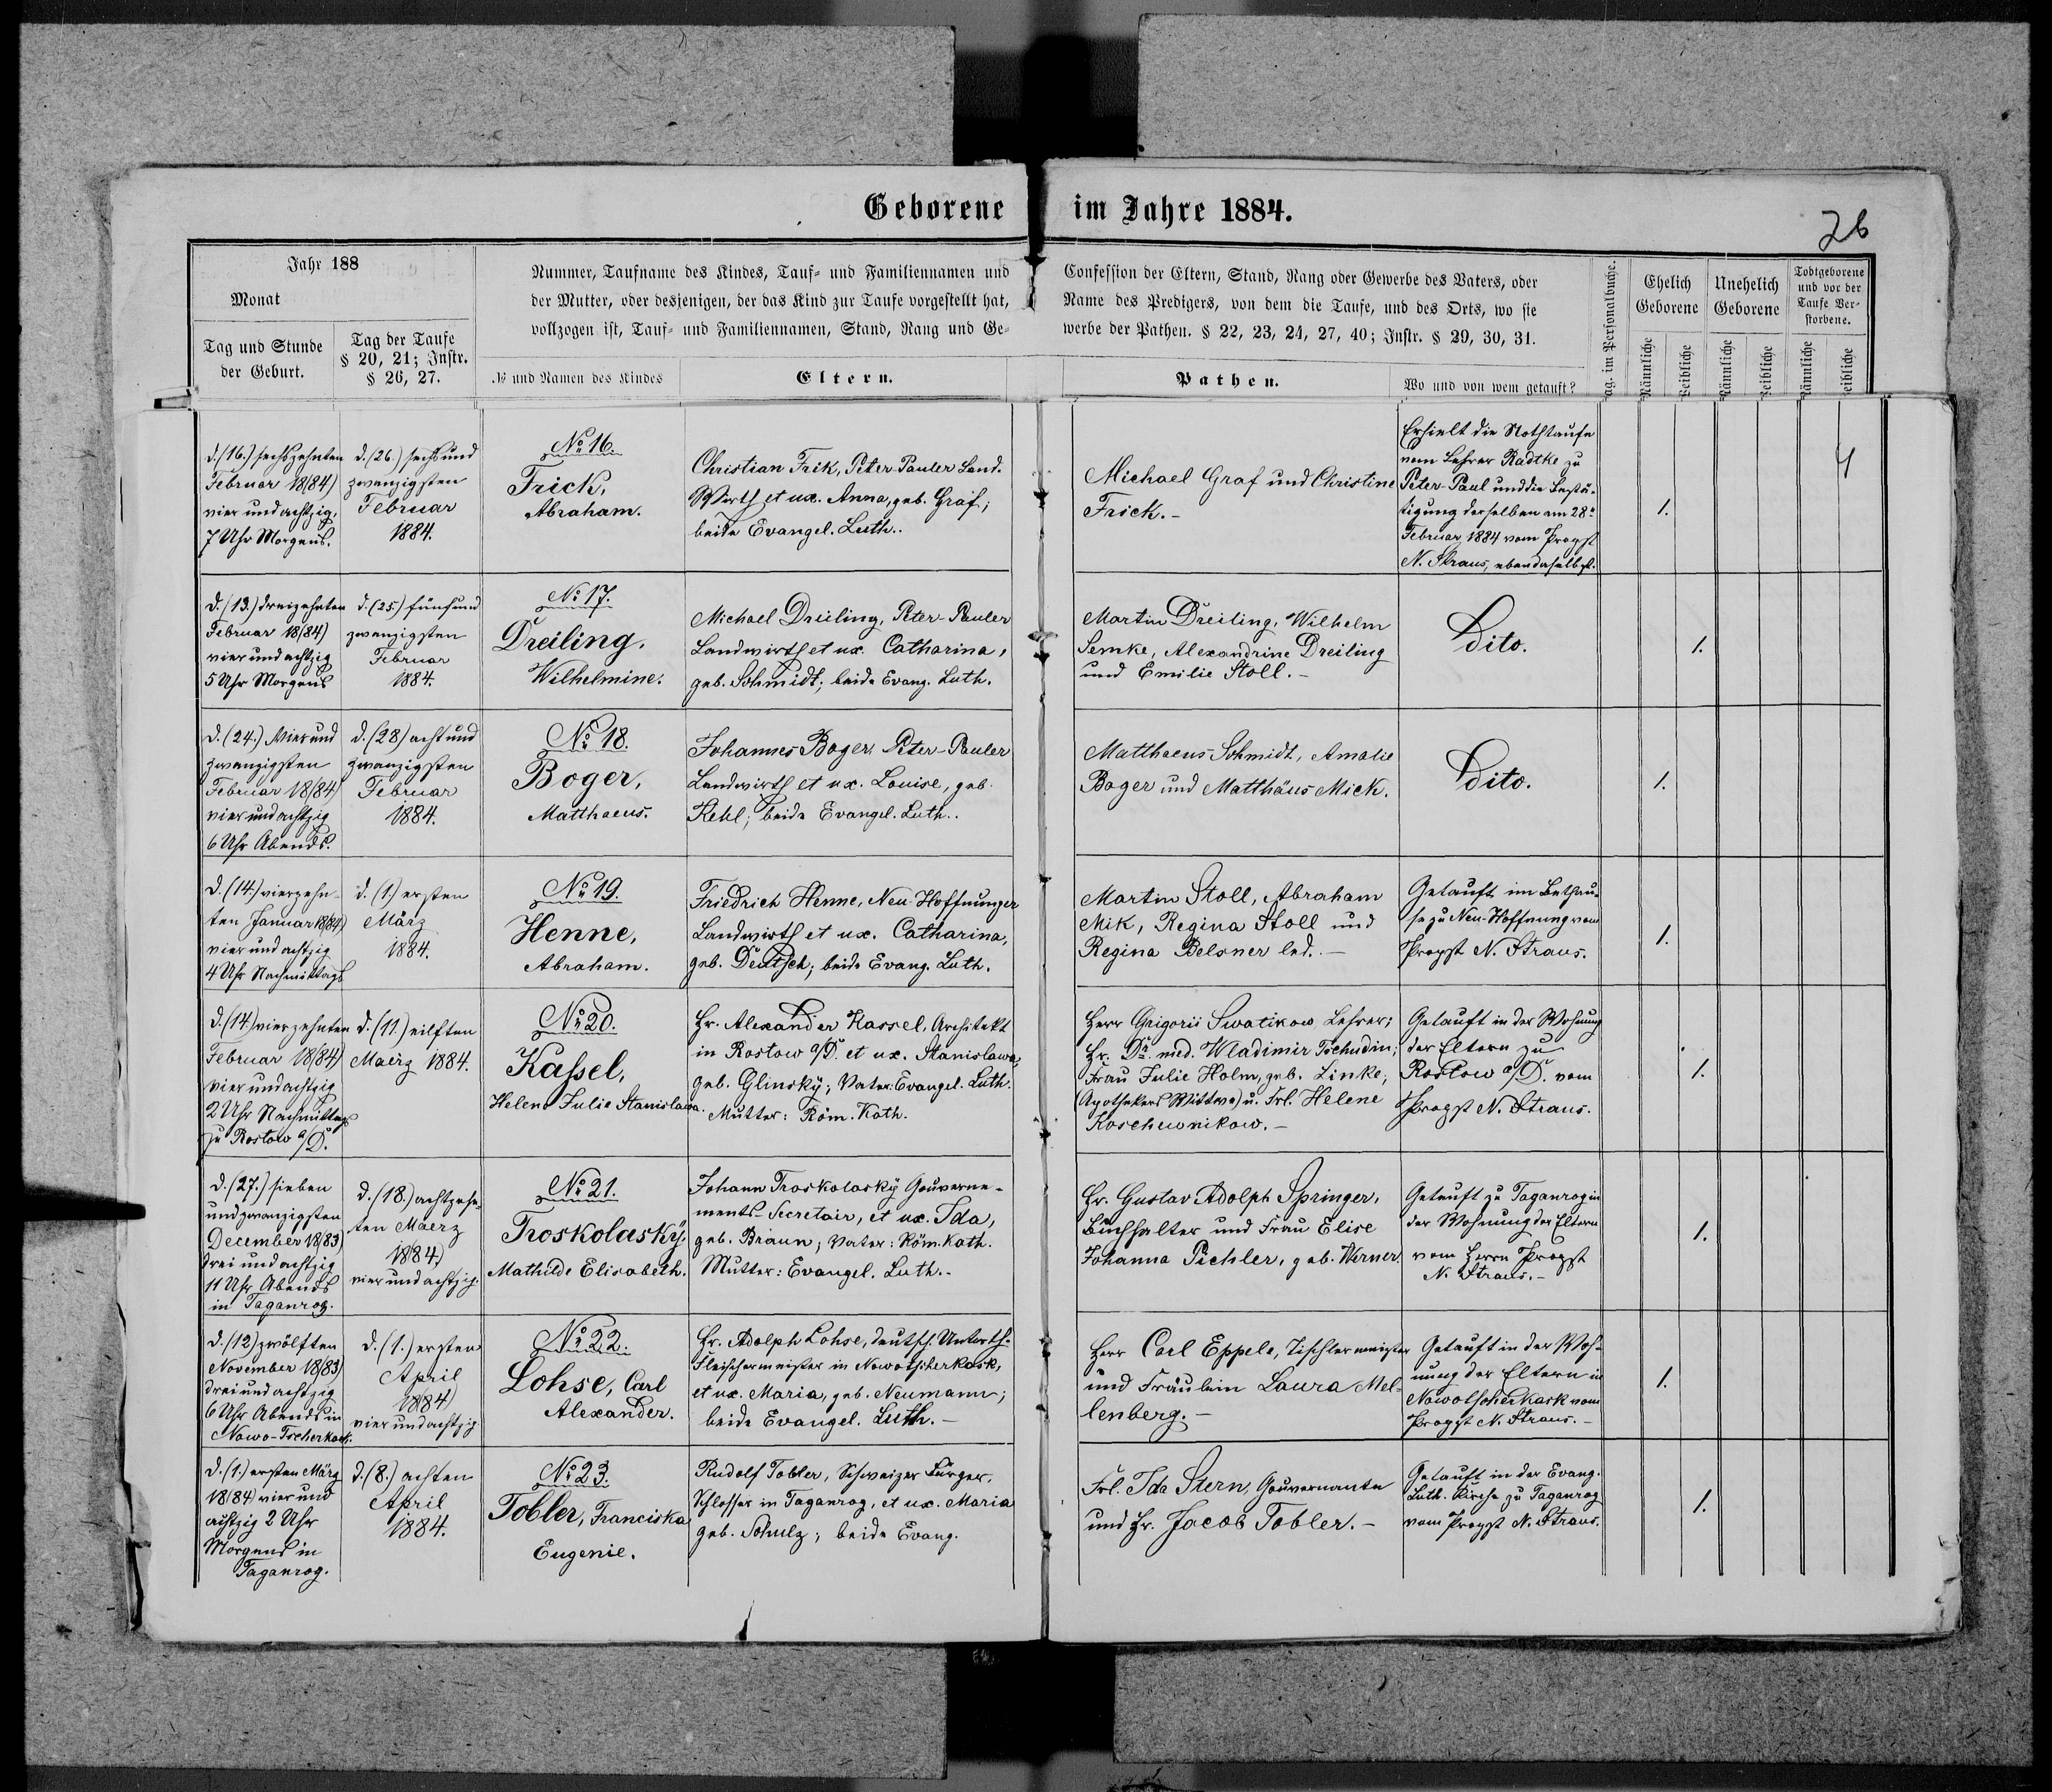 Geborene im Jahre 1884.
26
Jahr 188
Monat
Tag und Stunde
der Geburt.
Tag der Taufe
§ 20, 21; Instr.
§ 26, 27.
Nummer, Taufname des Kindes, Tauf- und Familiennamen und
der Mutter, oder desjenigen, der das Kind zur Taufe vorgestellt hat,
vollzogen ist, Tauf- und Familiennamen, Stand, Rang und Ge-
№ und Namen des Kindes
Eltern.
Confession der Eltern, Stand, Rang oder Gewerbe des Vaters, oder
Name des Predigers, von dem die Taufe, und des Orts, wo sie
werbe der Pathen. § 22, 23, 24, 27, 40; Instr. § 29, 30, 31.
Pathen.
Wo und von wem getauft?
ag. im Personalbuche.
Ehelich
Geborene
Unehelich
Geborene
Todtgeborene
und vor der
Taufe Ver-
storbene.
Männliche
Weibliche
Männliche
Weibliche
Männliche
Weibliche
d. (16.) sechszehnten
Februar 18(84)
vier und achtzig,
7 Uhr Morgens.
d. (26.) sechs und
zwanzigsten
Februar
1884.
No 16.
Frick,
Abraham.
Christian Frik, Peter-Pauler Land-
Wirth et ux. Anna, geb. Graf;
beide Evangel. Luth..
Michael Graf und Christine
Frick.-
Erhielt die Nothtaufe
vom Lehrer Radtke zu
Peter-Paul und die Bestä-
tigung derselben am 28n
Februar 1884 vom Propst
N. Straus, ebendaselbst.
1.
4
d. (13.) dreizehnten
Februar 18(84)
vier und achtzig
5 Uhr Morgens
d. (25.) fünf und
zwanzigsten
Februar
1884.
No 17.
Dreiling.
Wilhelmine.
Michael Dreiling, Peter-Pauler
Landwirth et ux. Catharina,
geb. Schmidt; beide Evang. Luth.
Martin Dreiling, Wilhelm
Semke, Alexandrine Dreiling
und Emilie Stoll.-
Dito.
1.
d. (24.) Vier und
zwanzigsten
Februar 18(84)
vier und achtzig
6 Uhr Abends.
d. (28) acht und
zwanzigsten
Februar
1884.
No 18.
Boger,
Matthaeus.
Johannes Boger, Peter-Pauler
Landwirth et ux. Louise, geb.
Kehl; beide Evangel. Luth..
Matthaeus Schmidt, Amalie
Boger und Matthäus Mick.
Dito.
1.
d. (14.) vierzehn-
ten Januar 18(84)
vier und achtzig
4 Uhr Nachmittags
d. (1.) ersten
März
1884.
No 19.
Henne,
Abraham.
Friedrich Henne, Neu-Hoffnunger
Landwirth et ux. Catharina,
geb. Deutsch; beide Evang. Luth.
Martin Stoll, Abraham
Mik, Regina Stoll und
Regina Belsner led. -
Getauft im Bethau-
se zu Neu-Hoffnung vom
Propst N. Straus.
1.
d. (14) vierzehnten
Februar 18(84)
vier und achtzig
2 Uhr Nachmittags
zu Rostow a/D.
d. (11.) eilften
Maerz 1884.
No 20.
Kassel,
Helene Julie Stanislawa.
Hr. Alexander Kassel, Architekt
in Rostow a/D. et ux. Stanislawa,
geb. Glinsky; Vater: Evangel. Luth.
Mutter: Röm. Kath.
Herr Grigorii Swatikow Lehrer;
Hr. Dr. med. Wladimir Tschudin;
Frau Julie Holm, geb. Linke;
(Apothekers Wittwe) u. Frl. Helene
Koschewnikow.-
Getauft in der Wohnung
der Eltern zu
Rostow a/D. vom
Propst N. Straus.
1.
d. (27.) sieben
und zwanzigsten
December 18(83)
drei und achtzig
11 Uhr Abends
in Taganrog.
d. (18.) achtzehn-
ten Maerz
18(84)
vier und achtzig.
No 21.
Troskolasky,
Mathilde Elisabeth.
Johann Troskolasky Gouverne-
ments-Secretair, et ux. Ida,
geb. Braun; Vater: Röm. Kath.
Mutter: Evangel. Luth.-
Hr. Gustav Adolph Springer,
Buchhalter und Frau Elise
Johanna Pichler, geb. Werner.
Getauft zu Taganrog in
der Wohnung der Eltern
vom Herrn Propst
N. Straus.-
1.
d. (12) zwölften
November 18(83)
drei und achtzig
6 Uhr Abends in
Nowo-Tscherkask.
d. (1.) ersten
April
18(84)
vier und achtzig
No 22.
Lohse, Carl
Alexander.
Hr. Adolph Lohse, deutsch. Unterth.
Fleischermeister in Nowotscherkask,
et ux. Maria, geb. Neumann;
beide Evangel. Luth.-
Herr Carl Eppele, Tischlermeister
und Fräulein Laura Mel-
lenberg.-
Getauft in der Woh-
nung der Eltern in
Nowotscherkask vom
Propst N. Straus.-
1.
d. (1.) ersten März
18(84) vier und
achtzig 2 Uhr
Morgens in
Taganrog.
d. (8.) achten
April
1884.
No 23.
Tobler, Franciska
Eugenie.
Rudolf Tobler, Schweizer Bürger,
Schlosser in Taganrog, et ux. Maria
geb. Schulz; beide Evang.
Frl. Ida Stern, Gouvernante
und Hr. Jacob Tobler.-
Getauft in der Evang.
Luth. Kirche zu Taganrog
vom Propst N. Straus.
1.